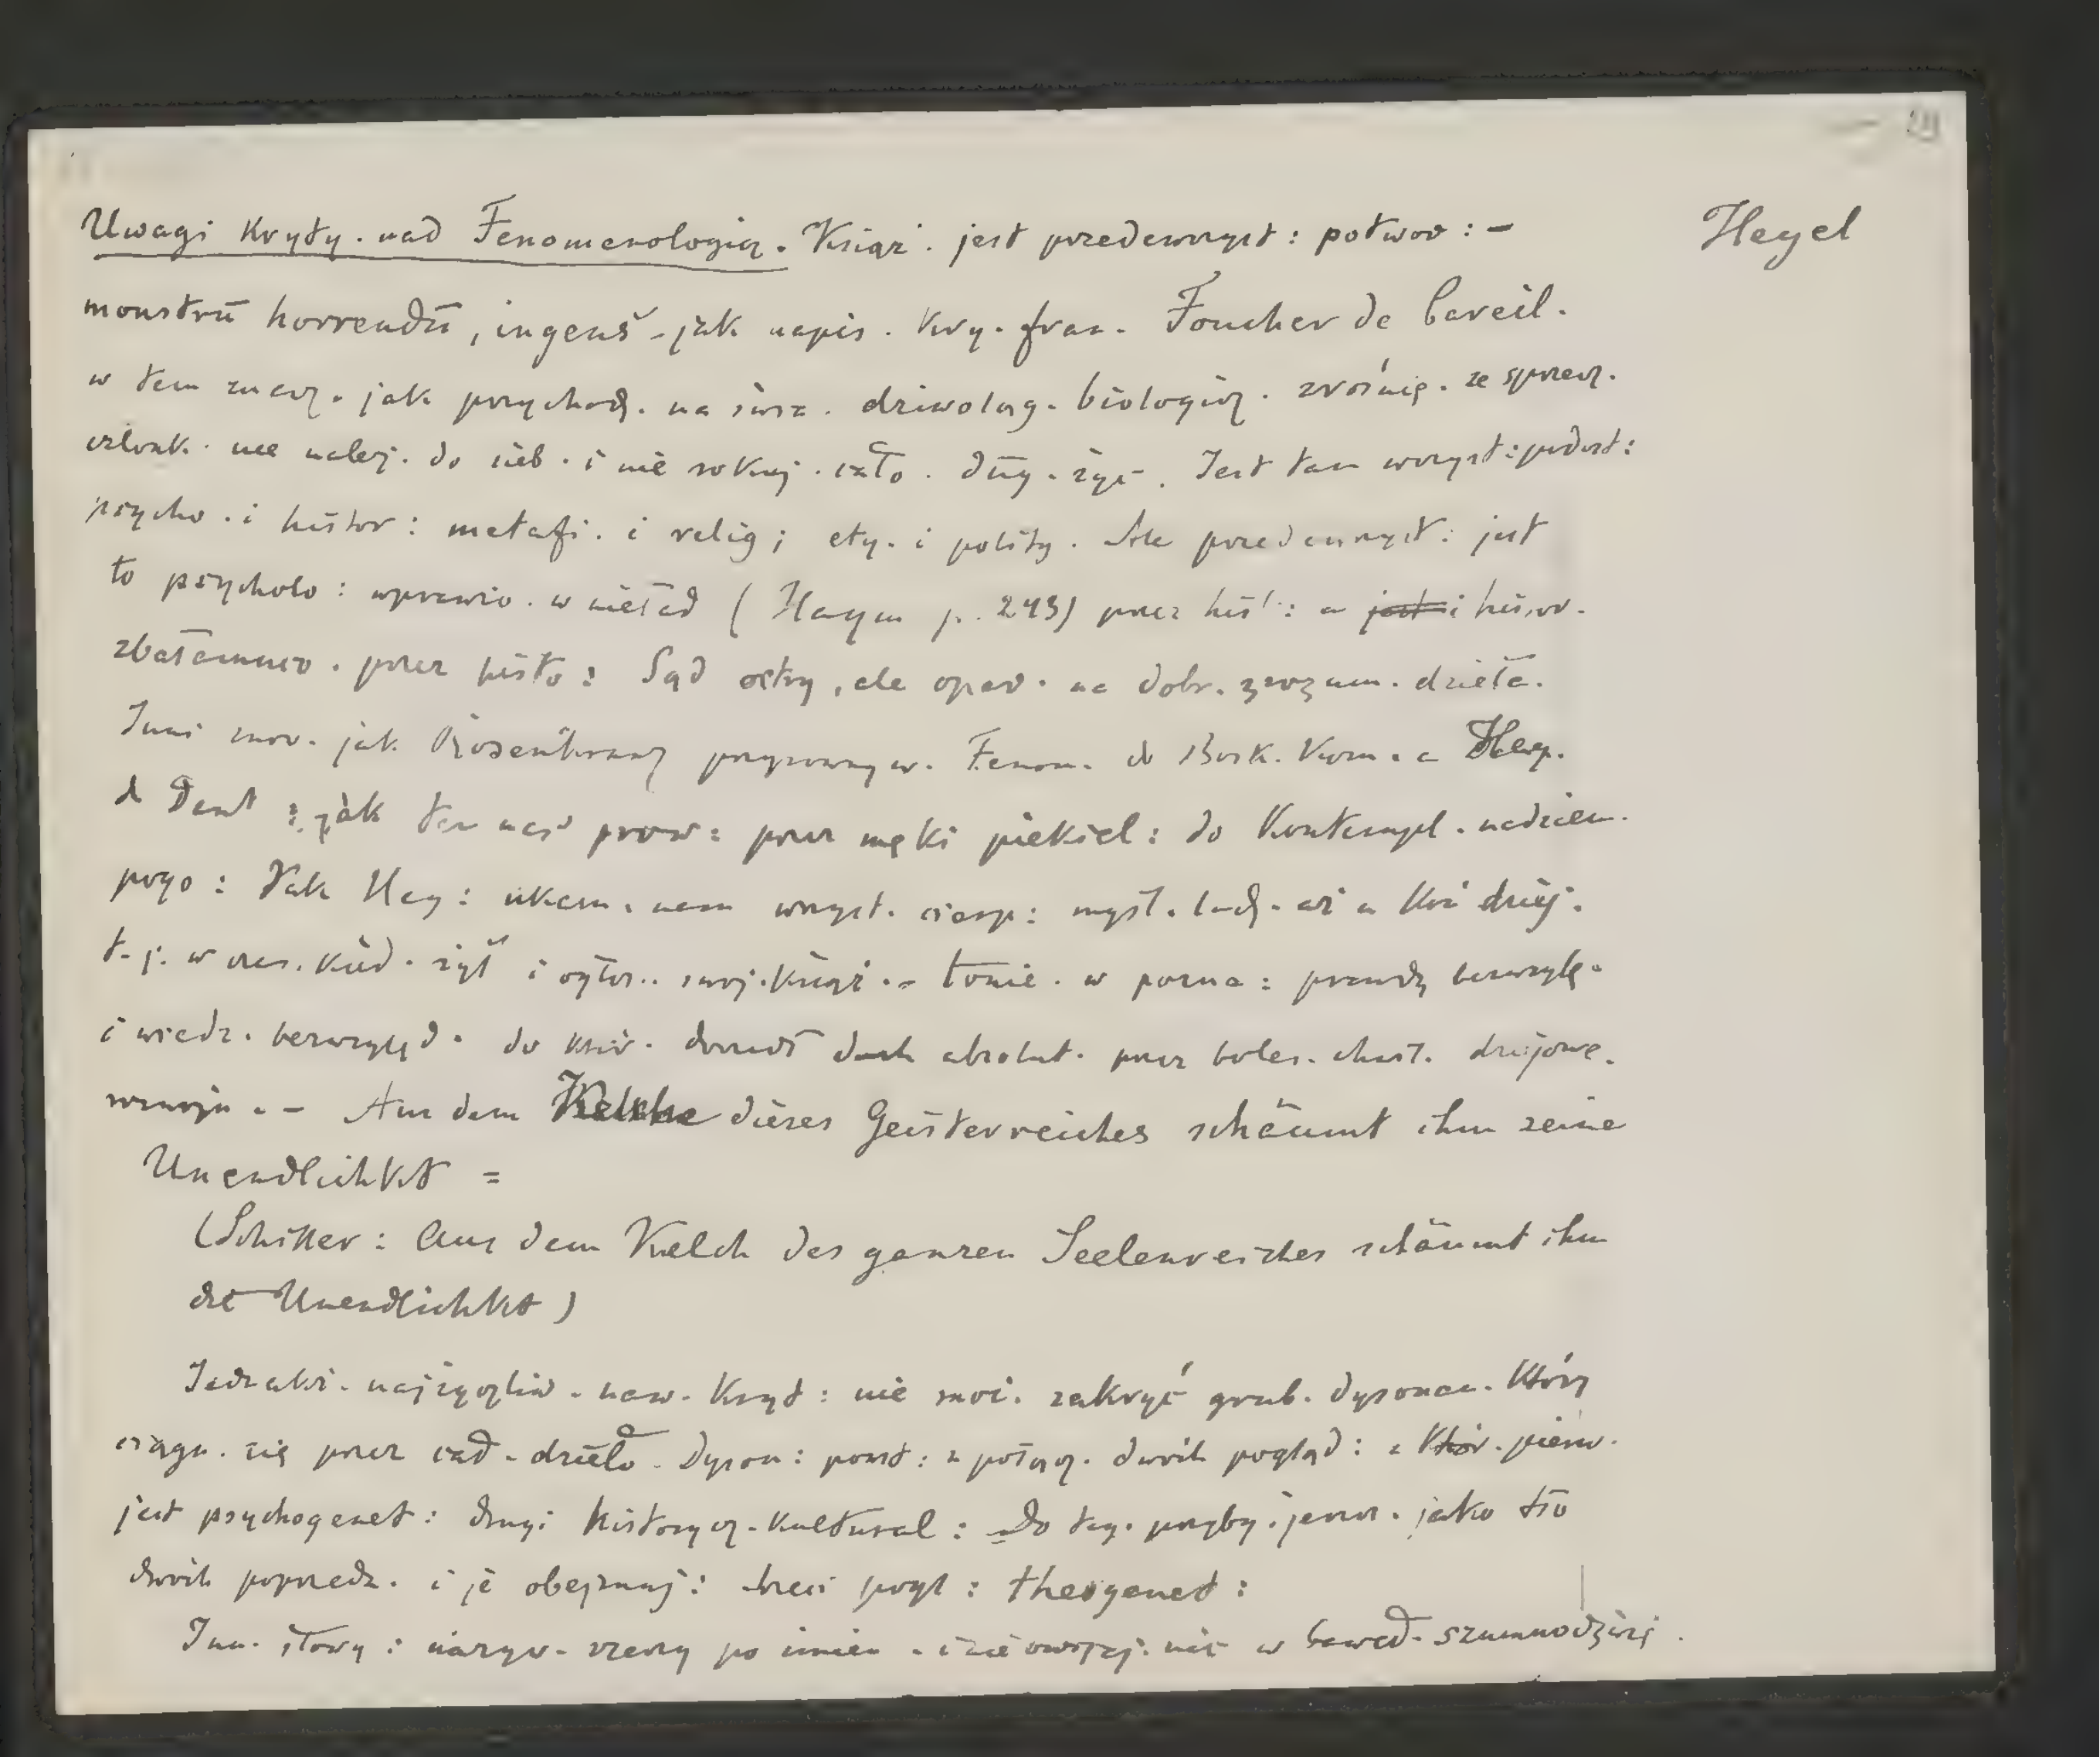 Hegel
Uwagi kryty. nad Fenomenologią. Książ. jest przedewszyst: potwor: -
monstrū horrendū, ingens - jak napis. kry. fran. Foucher de Careil.
w tem znacz. jak przychodz. na świa. dziwoląg. biologicz. zrośnię. ze sprzecz.
członk. nie należ. do sieb. i nie rokuj. cało. dług. życ. Jest tam wszyst:
psycho. i histor: metafi. i relig; ety. i polity. Ale przedewszyst: jest
to psycholo: wprawio. w nieład (Haym p. 243) przez hist: a i histor.
zbałamuco. przez histo: Sąd ostry, ale opar. na dobr. zrozum. dzieła.
Inni znow. jak Rosenkranz przyrowyw. Fenom. do Bosk. Kom. a Heg.
do Dant: jak ten nas prow: przez męki piekieł: do kontempl. nadziem.
Tak Heg: ukazu. nam wszyst. cierp: myśl. ludz. aż u koń dziej.
t. j. w czas. kied. żył i ogłos. swoj. książ. - tonie. w pozna: prawdy bezwzglę.
i wiedz. bezwzględ. do któr. duch absolut. przez boles. dziejowe.
- Aus dem Kelche dieses Geisterreiches schäumt ihm seine
Unendlichkt =
(Schiller: Aus dem Kelch des ganzen Seelenreiches schäumt ihm
die Unendlichkt)
Jednakż. najżyczliw. naw. kryt: nie moż. zakryć grub. dysonan. który
ciągn. się przez całe dzieło. Dyson: powst: z połącz. dwóch pogląd: z któr. pierw.
jest psychogenet: drugi historycz. kultural: Do teg. przyby. jeszcz. jako tło
dwóch poprzedz. i je obejmuj: trzeci pogl: theogenet:
Inn. słowy: nazyw. rzeczy po imien. i nie owijaj. nic w baweł.